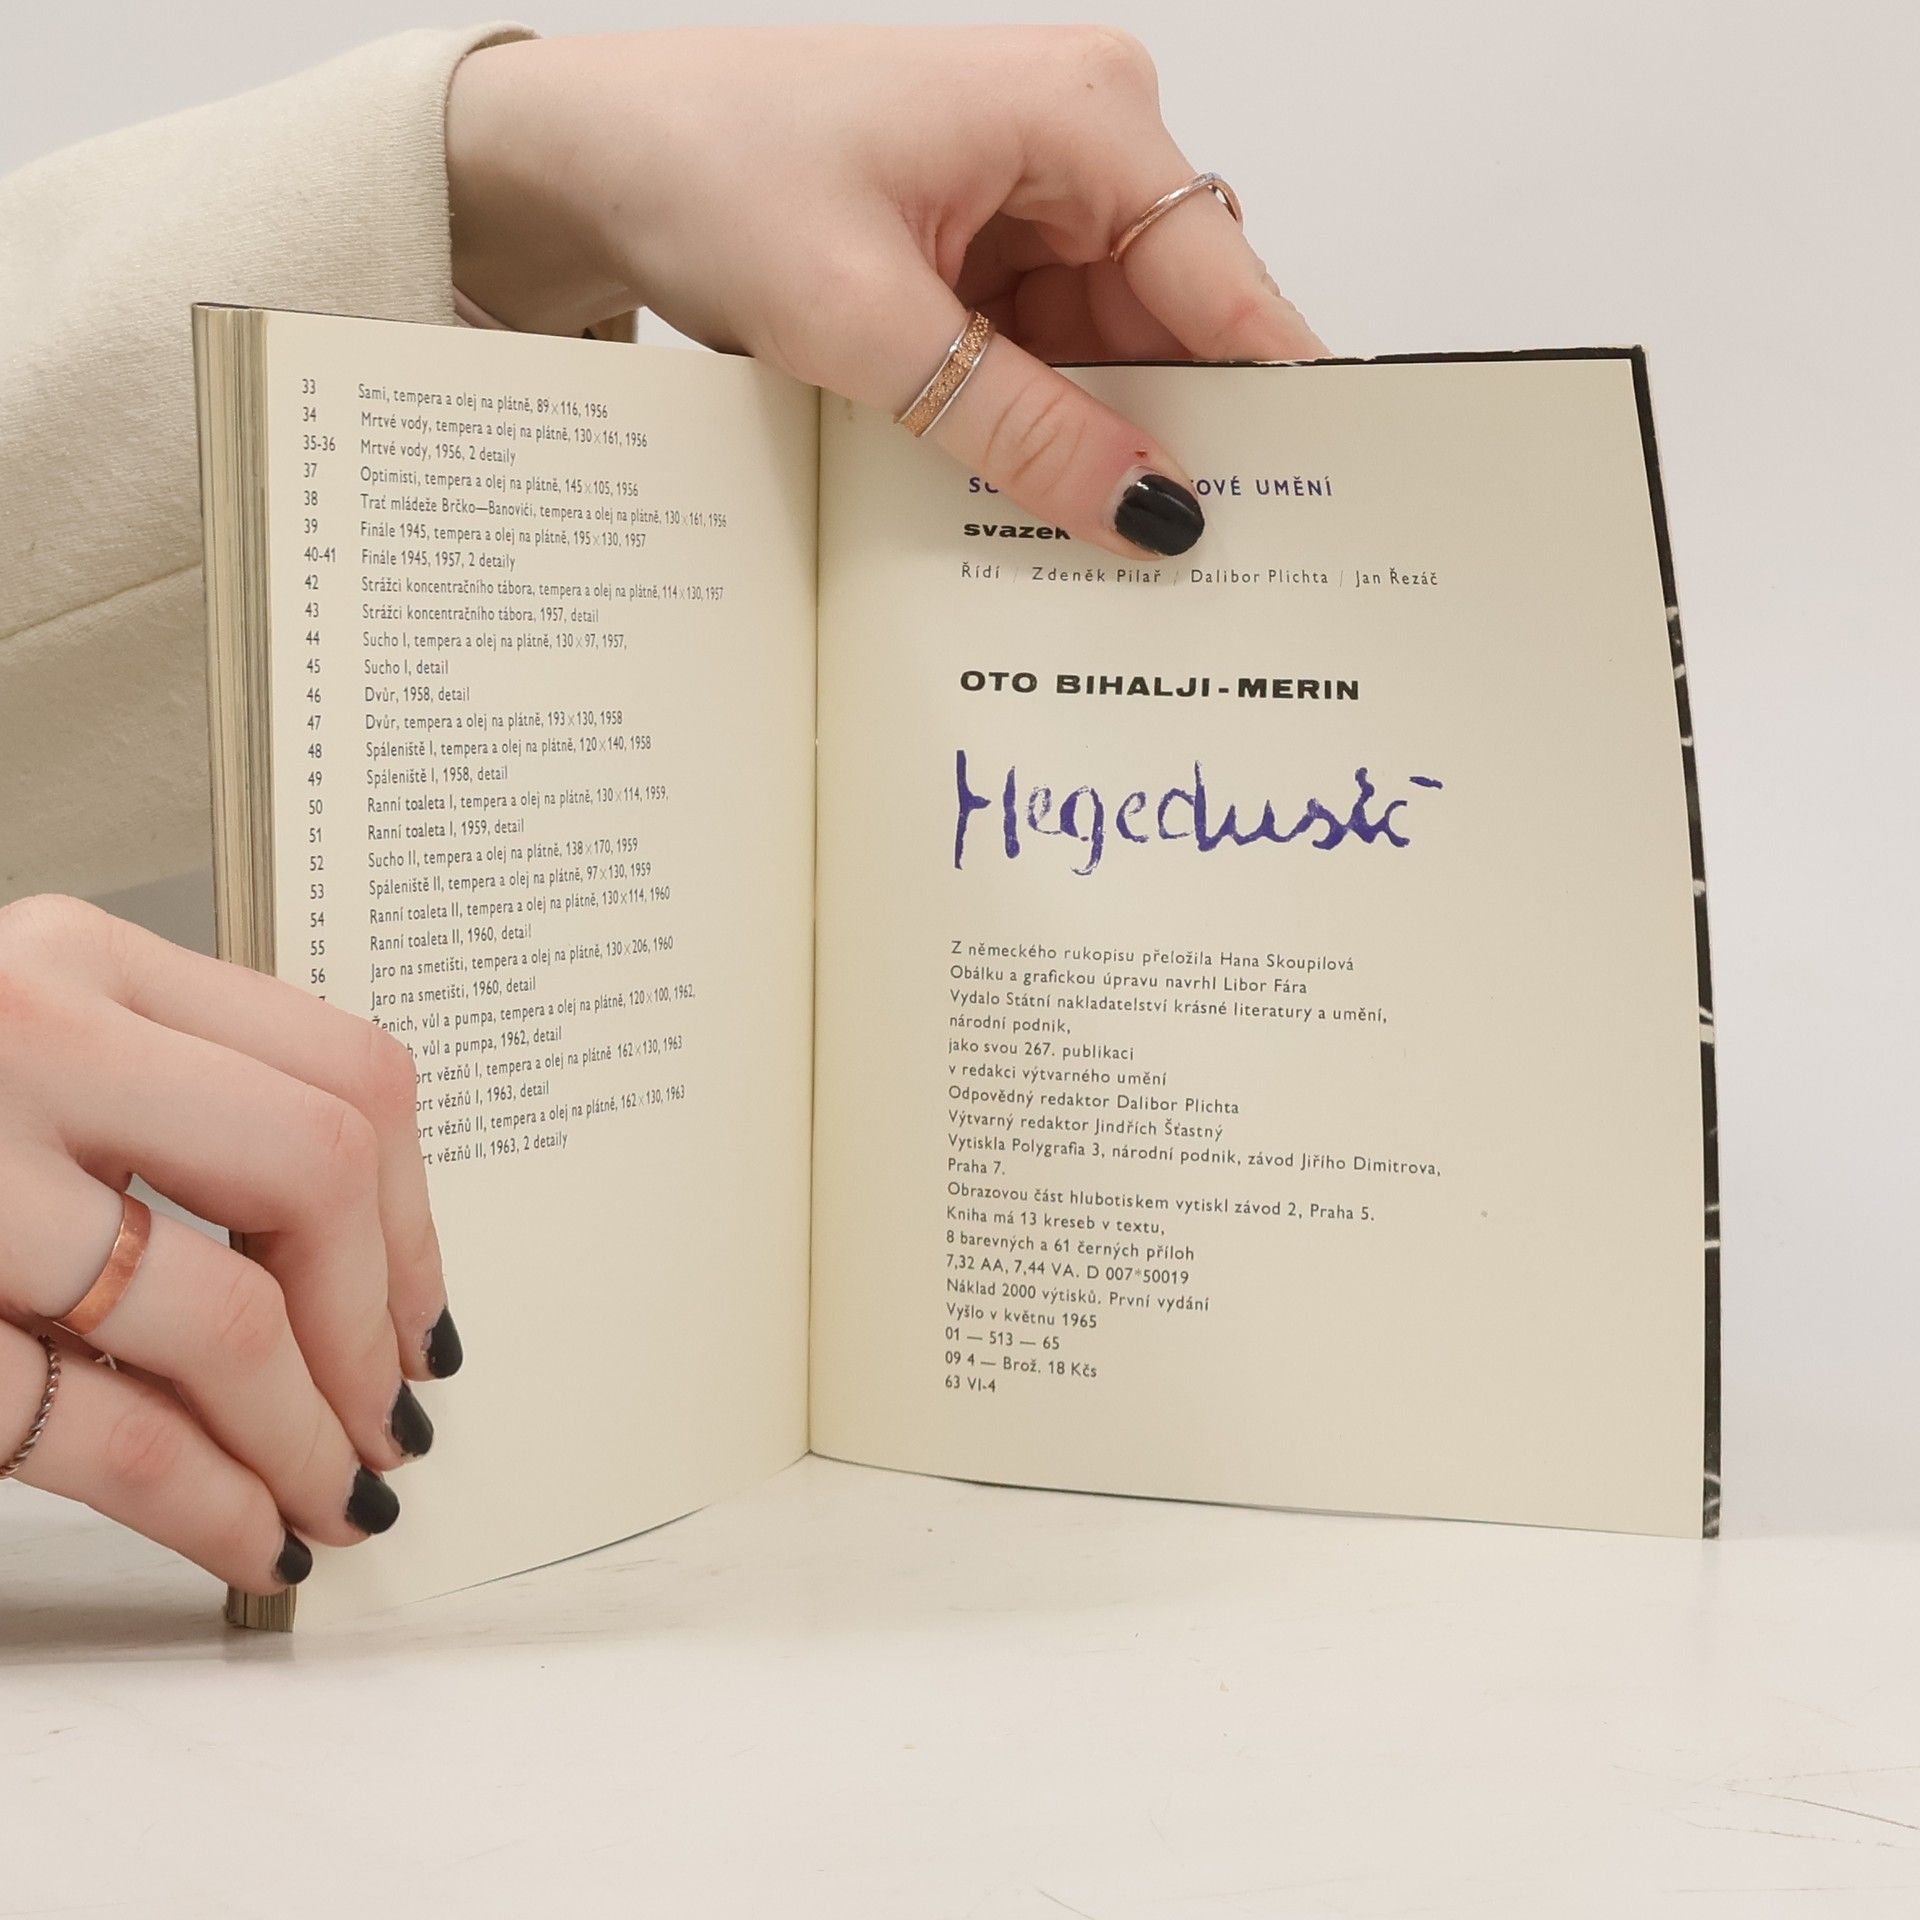 33 Sami, tempera a olej na plátně, 89×116, 1956
34 Mrtvé vody, tempera a olej na plátně, 130×161, 1956
35-36 Mrtvé vody, 1956, 2 detaily
37 Optimisti, tempera a olej na plátně, 145×105, 1956
38 Trať mládeže Brčko—Banovići, tempera a olej na plátně, 130×161, 1956
39 Finále 1945, tempera a olej na plátně, 195×130, 1957
40-41 Finále 1945, 1957, 2 detaily
42 Strážci koncentračního tábora, tempera a olej na plátně, 114×130, 1957
43 Strážci koncentračního tábora, 1957, detail
44 Sucho I, tempera a olej na plátně, 130×97, 1957,
45 Sucho I, detail
46 Dvůr, 1958, detail
47 Dvůr, tempera a olej na plátně, 193×130, 1958
48 Spáleniště I, tempera a olej na plátně, 120×140, 1958
49 Spáleniště I, 1958, detail
50 Ranní toaleta I, tempera a olej na plátně, 130×114, 1959,
51 Ranní toaleta I, 1959, detail
52 Sucho II, tempera a olej na plátně, 138×170, 1959
53 Spáleniště II, tempera a olej na plátně, 97×130, 1959
54 Ranní toaleta II, tempera a olej na plátně, 130×114, 1960
55 Ranní toaleta II, 1960, detail
56 Jaro na smetišti, tempera a olej na plátně, 130×206, 1960
Jaro na smetišti, 1960, detail
Ženich, vůl a pumpa, tempera a olej na plátně, 120×100, 1962,
vůl a pumpa, 1962, detail
vězňů I, tempera a olej na plátně 162×130, 1963
vězňů I, 1963, detail
vězňů II, tempera a olej na plátně, 162×130, 1963
vězňů II, 1963, 2 detaily
UMĚNÍ
svazek
Řídí / Zdeněk Pilař / Dalibor Plichta / Jan Řezáč
OTO BIHALJI-MERIN
Hegedusić
Z německého rukopisu přeložila Hana Skoupilová
Obálku a grafickou úpravu navrhl Libor Fára
Vydalo Státní nakladatelství krásné literatury a umění,
národní podnik,
jako svou 267. publikaci
v redakci výtvarného umění
Odpovědný redaktor Dalibor Plichta
Výtvarný redaktor Jindřich Šťastný
Vytiskla Polygrafia 3, národní podnik, závod Jiřího Dimitrova,
Praha 7.
Obrazovou část hlubotiskem vytiskl závod 2, Praha 5.
Kniha má 13 kreseb v textu,
8 barevných a 61 černých příloh
7,32 AA, 7,44 VA. D 007*50019
Náklad 2000 výtisků. První vydání
Vyšlo v květnu 1965
01 — 513 — 65
09 4 — Brož. 18 Kčs
63 VI-4